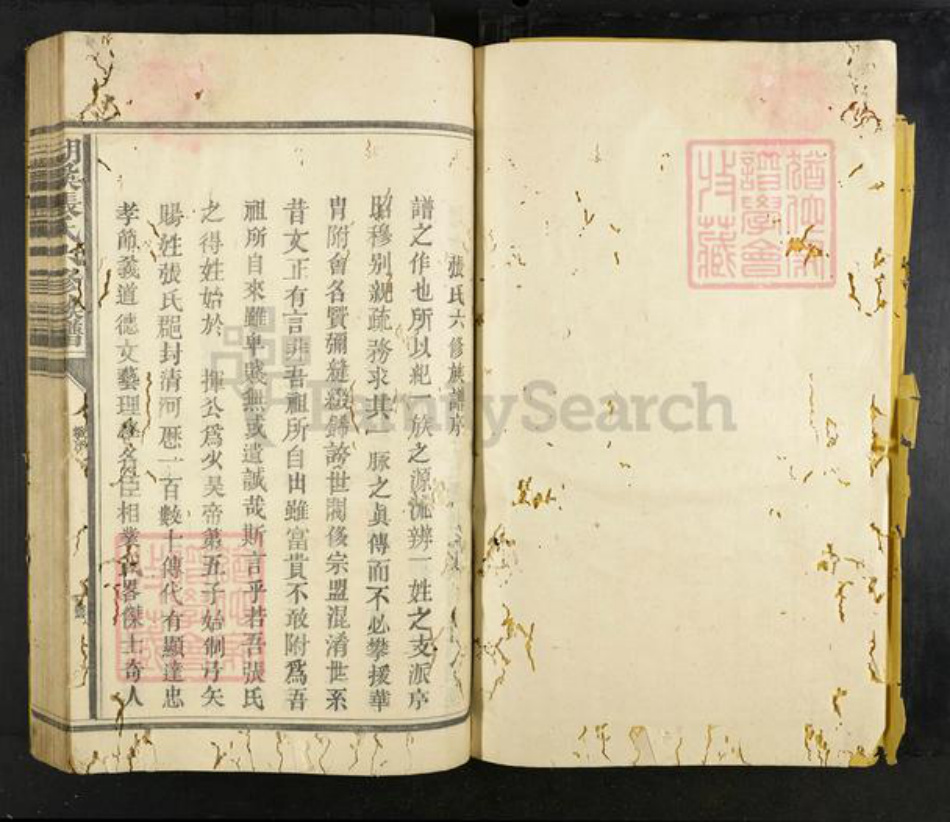 張氏六修族譜序
譜之作也所以紀一族之源流辨一姓之支派序
昭穆别親疏務求其一脉之真傳而不必攀援華
胄附會各賢彌縫綴
誇世閥後宗盟混淆世系
昔文正有言非吾祖所自出雖富貴不敢附爲吾
祖所自來雖卑賤無或遺誠哉斯言乎若吾張氏
之得姓始於 揮公爲少昊帝第五子始制弓矢
賜姓張氏郡封清河歷一百數十傳代有顯達忠
孝節義道德文藝理學名臣相業
器傑士奇人
張氏六修族譜
譜學會
收藏
FamilySearch